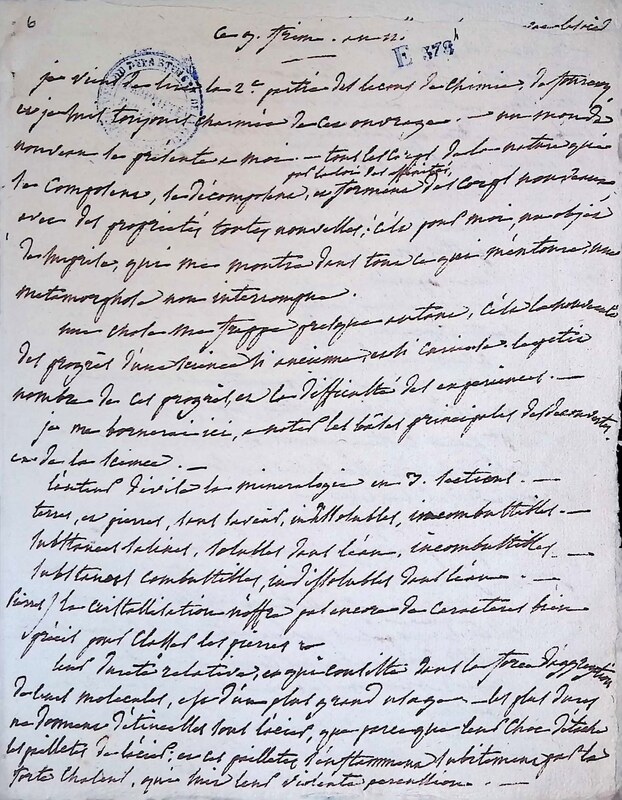 6
ce 9. frim. an 11.
E 378
je viens de lire la 2e partie des leçons de chimie, de fourcroy
et je suis toujours charmée de cet ouvrage. — un monde
nouveau se présente a moi. — tous les corps de la nature qui
par la loi des affinités,
se composent, se décomposent, et forment des corps nouveaux
avec des propriétés toutes nouvelles; c'est pour moi, un objet
de surprise, qui me montre dans tout ce qui m'entoure, une
metamorphose non interrompue.
une chose me frappe presque autant, c'est la nouveauté
des progrès d'une science si ancienne, et si curieuse. le petit
nombre de ces progrès et la difficulté des expériences. —
je me bornerai ici, a noter les bases principales des découvertes,
et de la science. —
l'auteur divise la mineralogie en 3. sections. —
terres, et pierres, sans saveur, indissolubles, incombustibles. —
substances salines, solubles dans l'eau, incombustibles. —
substances combustibles, indissolubles dans l'eau. —
pierres / la cristallisation n'offre pas encore de caractères bien
précis pour classer les pierres. —
leur dureté relative, et qui consiste dans la force d'aggrégation
de leurs molecules, est d'un plus grand usage. — les plus dures
ne donnent d'étincelles sous l'acier, que parce que leur choc détache
des paillettes de l'acier, et ces paillettes s'enflamment subitement par la
forte chaleur, que suit leur violente percussion. —